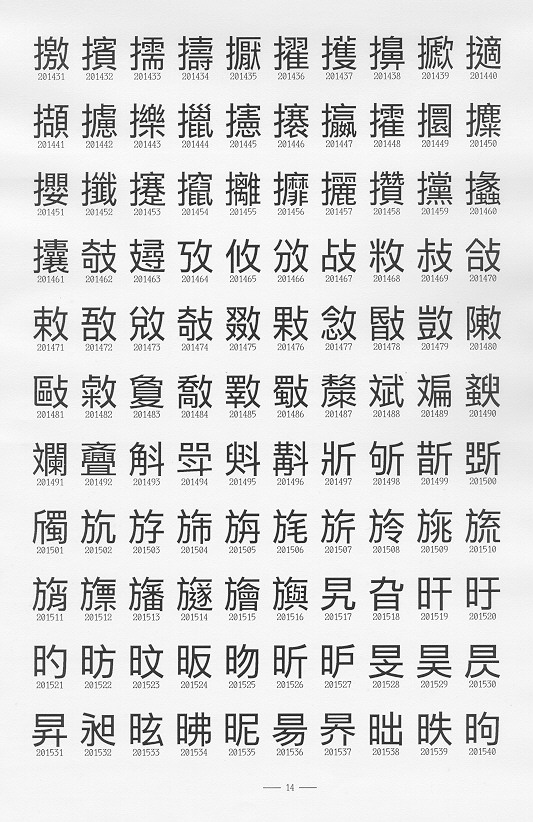 擏 擯 擩 擣 擫 擢 擭 擤 擨 擿
201431 201432 201433 201434 201435 201436 201437 201438 201439 201440
擷 攄 擽 擸 攇 攘 攍 攉 攌 攗
201441 201442 201443 201444 201445 201446 201447 201448 201449 201450
攖 攕 攓 攛 攡 攠 攦 攢 攩 攭
201451 201452 201453 201454 201455 201456 201457 201458 201459 201460
攮 攲 攳 攷 攸 攽 敁 敉 敊 敆
201461 201462 201463 201464 201465 201466 201467 201468 201469 201470
敕 敔 敚 敧 敪 敤 敜 敯 敳 敶
201471 201472 201473 201474 201475 201476 201477 201478 201479 201480
敺 敹 敻 敿 斁 斀 斄 斌 斒 斔
201481 201482 201483 201484 201485 201486 201487 201488 201489 201490
斕 斖 斛 斝 斞 斠 斨 斪 斮 斲
201491 201492 201493 201494 201495 201496 201497 201498 201499 201500
斸 斻 斿 旆 旃 旄 旂 旍 旐 旒
201501 201502 201503 201504 201505 201506 201507 201508 201509 201510
旓 旚 旛 旞 旝 旟 旯 旮 旰 旴
201511 201512 201513 201514 201515 201516 201517 201518 201519 201520
旳 昉 旼 昄 昒 昕 昈 旻 昊 昃
201521 201522 201523 201524 201525 201526 201527 201528 201529 201530
昇 昶 昡 昲 昵 昜 昦 昢 昳 昫
201531 201532 201533 201534 201535 201536 201537 201538 201539 201540
— 14 —